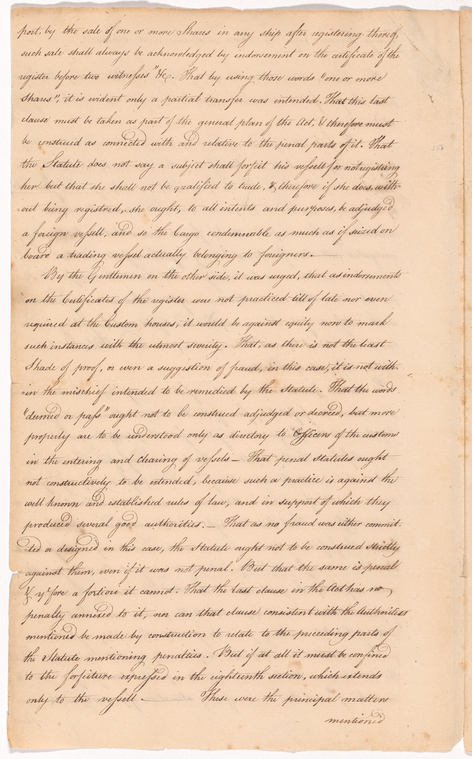 port, by the sale of one or more Shares in any ship after registering thereof,
such sale shall always be acknowledged by indorsement on the certificate of the
register before two witnesses" &c. That by using those words "one or more
shares", it is evident only a partial transfer was intended. That this last
clause must be taken as part of the general plan of the Act, & therefore must
be construed as connected with and relative to the penal parts of it. That
the Statute does not say a subject shall forfeit his vessell for not registering
her but that she shall not be qualified to trade, &, therefore if she does with-
out being registred, she ought, to all intents and purposes, be adjudged
a foreign vessell, and so the Cargo condemnable as much as if seized on
board a trading vessel actually belonging to foreigners.
By the Gentlemen on the other side, it was urged, that as indorsements
on the Certificates of the register were not practiced till of late nor even
required at the Custom houses, it would be against equity now to mark
such instances with the utmost severity. That, as there is not the least
Shade of proof, or even a suggestion of fraud, in this case, it is not with-
in the mischief intended to be remedied by the Statute. That the words
"deemed or pass" ought not to be construed adjudged or decreed, but more
properly are to be understood only as directory to Officers of the customs
in the entering and clearing of vessels - That penal statutes ought
not constructively to be intended, because such a practice is against the
well known and established rules of law, and in support of which they
produced several good authorities. - That as no fraud was either commit-
ted or designed in this case, the Statute ought not to be construed strictly
against them, even if it was not penal. But that the same is penal
& yrfore a fortiori it cannot. That the last clause in the Act has no
penalty annexed to it, nor can that clause consistent with the Authorities
mentioned be made by construction to relate to the preceding parts of
the Statute mentioning penalties. But if at all it must be confined
to the forfeiture expressed in the eighteenth section, which extends
only to the vessell. - These were the principal matters
mentioned